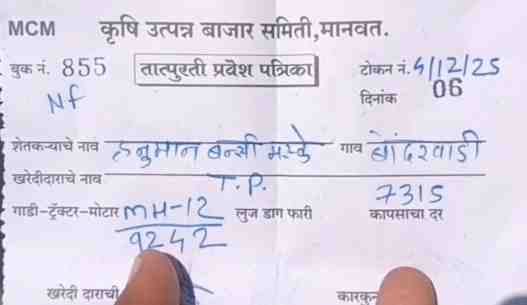 MCM कृषि उत्पन्न बाजार समिती,मानवत.
बुक नं. 855 तात्पुरती प्रवेश पत्रिका टोकन नं. 5/12/25
Nf दिनांक 06
शेतकऱ्याचे नाव हनुमान बन्सी मस्के गाव बोंदरवाडी
खरेदीदाराचे नाव T.P.
गाडी-ट्रॅक्टर-मोटार MH-12 लुज डाग फारी 7315 कापसाचा दर
9242
खरेदी दाराची कारकुन